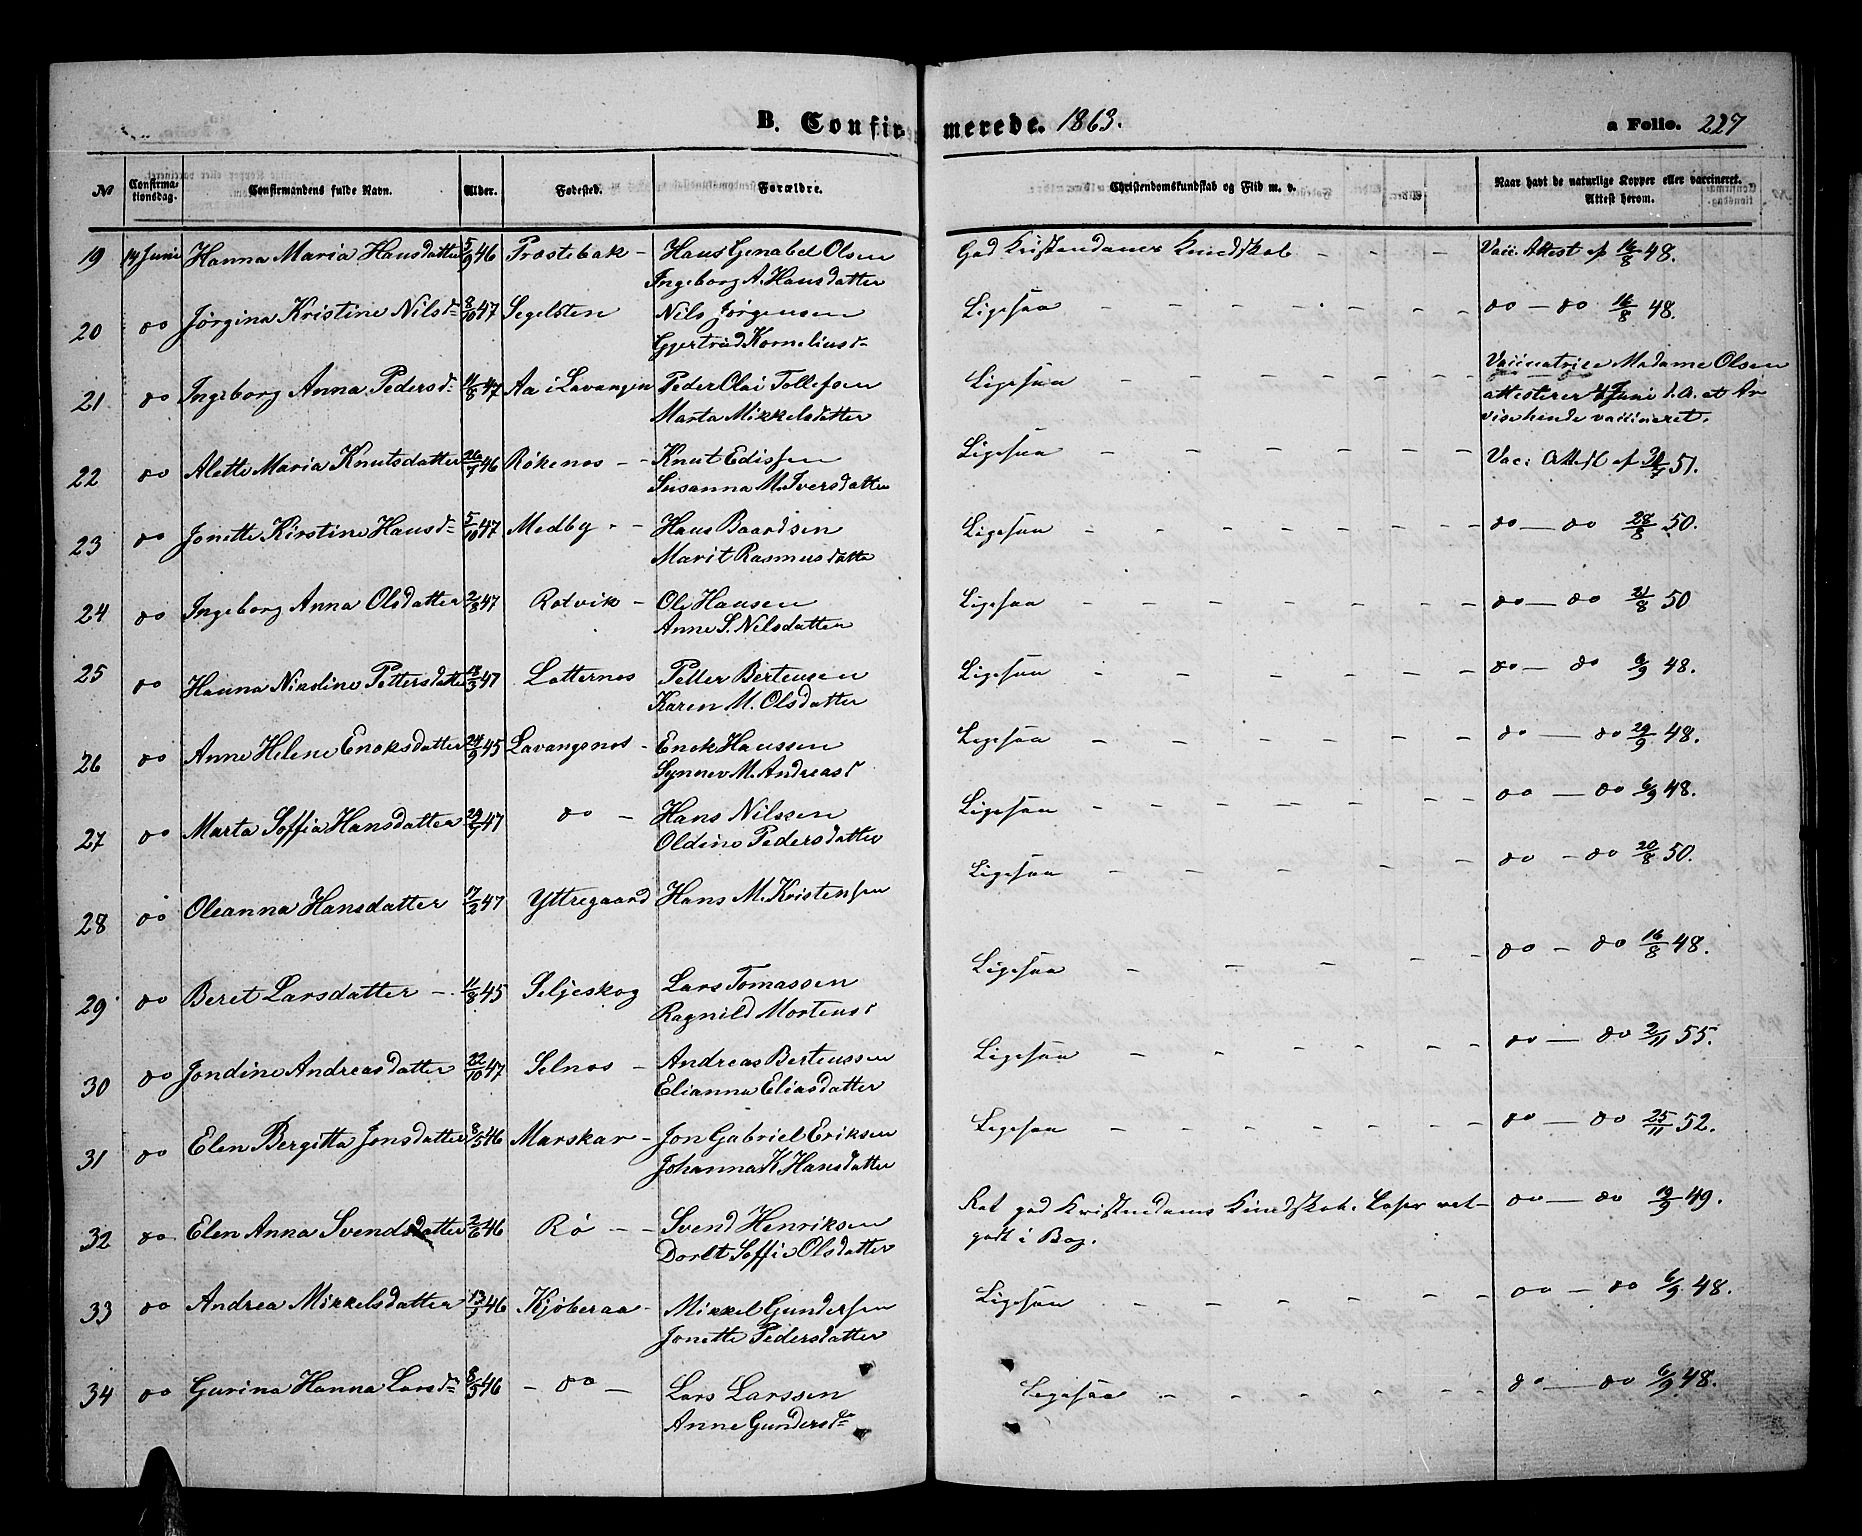 B. Confirmerede. 1863. a Folio. 227
№ Confirmationsdag. Confirmandens fulde Navn. Alder. Fødested. Forældre. Christendomskundskab og Flid m. v. Naar havt de naturlige Kopper eller vaccineret. Attest herom.
19 14 Juni Hanna Maria Hansdatter 5/9 46 Prostebak - Hans Genabel Olsen God Kristendoms Kundskab - - - Vaci. Attest af 16/8 48.
Ingeborg A. Hansdatter
20 do Jørgina Kristine Nilsd- 8/10 47 Segelsten Nils Jørgensen Ligesaa - - - - - - - do — do 16/8 48.
Gjertrud Korneliusd-
21 do Ingeborg Anna Pedersd- 11/8 47 Aa i Lavangen Peder Olai Tollefsen Ligesaa - - - - - - - Vaccinatrice Madame Olsen
Marta Mikkelsdatter attesterer 4 Juni d. A. at have
vise hende vaccineret.
22 do Alette Maria Knutsdatter 26/7 46 Røkenes - - Knut Edissen Ligesaa - - - - - - - Vac: Attest af 51.
Susanna M. Iversdatter
23 do Jonette Kirstine Hansd- 5/10 47 Medby - - Hans Baardsen Ligesaa - - - - - - - do — do 28/8 50.
Marit Rasmusdatter
24 do Ingeborg Anna Olsdatter 2/8 47 Rotvik - Ole Hansen Ligesaa - - - - - - - do — do 21/8 50
Anne S. Nilsdatter
25 do Hanna Nikoline Pettersdatter 13/3 47 Latternes Petter Bertensen Ligesaa - - - - - - - do — do 6/9 48.
Karen M. Olsdatter
26 do Anne Helene Enoksdatter 24/9 45 Lavangsnes - Enok Hanssen Ligesaa - - - - - - - do — do 29/9 48.
Synnev M. Andreasd
27 do Marta Soffia Hansdatter 29/7 47 do - Hans Nilssen Ligesaa - - - - - - - do — do 6/9 48.
Oldine Pedersdatter
28 do Oleanna Hansdatter 17/2 47 Yttregaard Hans M. Kristensen Ligesaa - - - - - - do - do 20/8 50.
29 do Beret Larsdatter - 11/8 45 Seljeskog Lars Tomassen Ligesaa - - - - - do - do 16/8 48.
Ragnild Mortensd
30 do Jondine Andreasdatter 22/10 47 Selnes - Andreas Bertenssen Ligesaa - - - - - - do — do 2/11 55.
Elianna Eliasdatter
31 do Elen Bergitta Jonsdatter 8/5 46 Marskar - Jon Gabriel Eriksen Ligesaa - - - - - - do — do 25/11 52.
Johanna K. Hansdatter
32 do Elen Anna Svendsdatter 2/6 46 Rø - - Svend Henriksen Ret god Kristendoms Kundskab. Læser ret- do — do 19/9 49.
Doret Soffie Olsdatter godt i Bog.
33 do Andrea Mikkelsdatter 13/9 46 Kjøberaa - Mikkel Gundersen Ligesaa - - - - - - do — do 6/9 48.
Jonette Pedersdatter
34 do Gurina Hanna Larsd- 8/3 46 - do - Lars Larssen Ligesaa - - - - - - do — do 6/9 48.
Anne Gundersd-